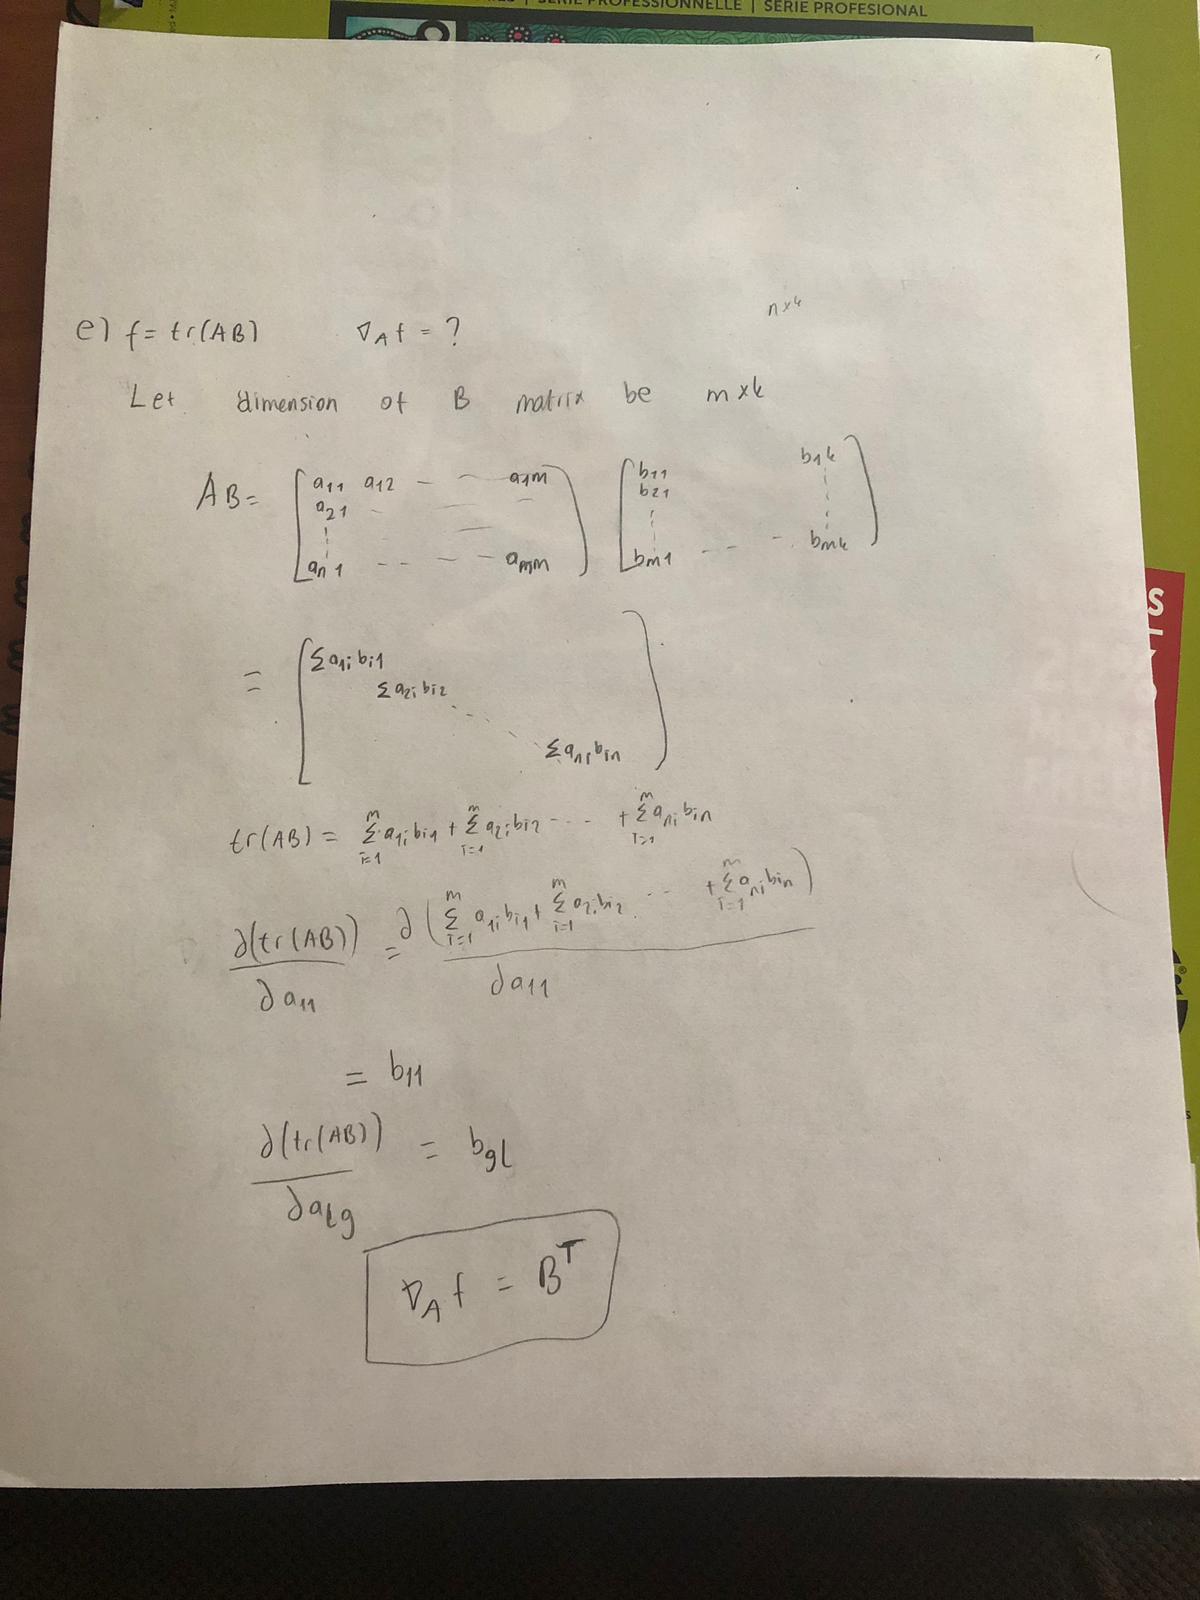 SÉRIE PROFESSIONNELLE | SERIE PROFESIONAL
n×k
e) f = tr(AB) ∇_A f = ?
Let dimension of B matrix be m×k
AB = [a11 a12 - - - a1m] [b11 b1k]
[a21 - - -] [b21]
[an1 - - - - amm] [bm1 - - - bmk]
= [Σa1ibi1
Σa2ibi2
Σanibin]
tr(AB) = Σ_{i=1}^{m} a1ibi1 + Σ_{i=1}^{m} a2ibi2 ---- + Σ_{i=1}^{m} anibin
∂(tr(AB))/∂a11 = ∂(Σ_{i=1}^{m} a1ibi1 + Σ_{i=1}^{m} a2ibi2 ... + Σ_{i=1}^{m} anibin)/∂a11
= b11
∂(tr(AB))/∂aLg = bgL
∇_A f = B^T